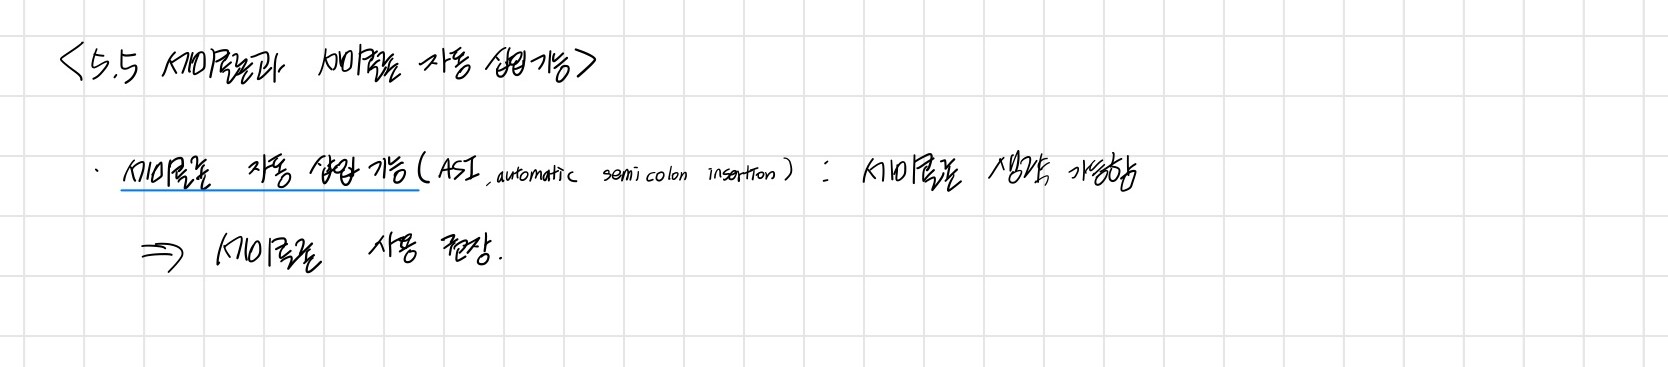 <5.5 세미콜론과 세미콜론 자동 삽입 기능>
· 세미콜론 자동 삽입 기능 (ASI, automatic semicolon insertion) : 세미콜론 생략 가능함
⇒ 세미콜론 사용 권장.